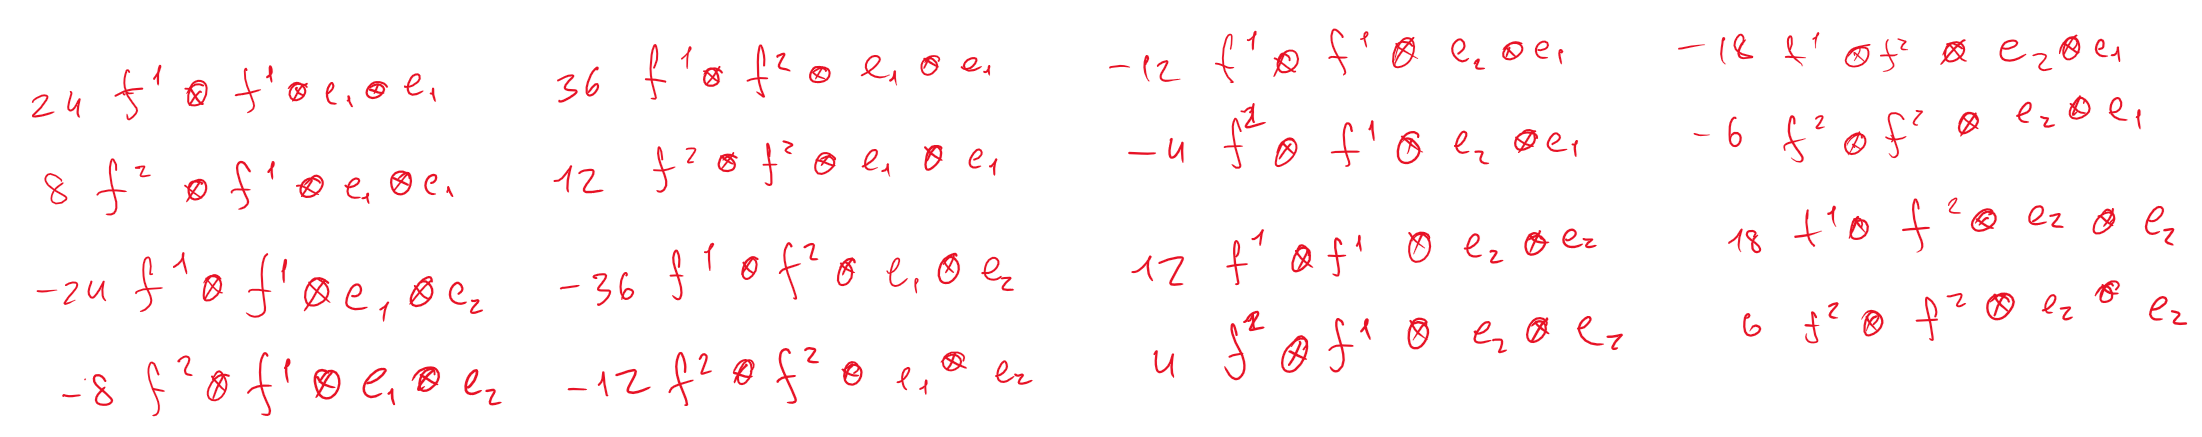 24 f¹ ⊗ f¹ ⊗ e₁ ⊗ e₁
8 f² ⊗ f¹ ⊗ e₁ ⊗ e₁
-24 f¹ ⊗ f¹ ⊗ e₁ ⊗ e₂
-8 f² ⊗ f¹ ⊗ e₁ ⊗ e₂
36 f¹ ⊗ f² ⊗ e₁ ⊗ e₁
12 f² ⊗ f² ⊗ e₁ ⊗ e₁
-36 f¹ ⊗ f² ⊗ e₁ ⊗ e₂
-12 f² ⊗ f² ⊗ e₁ ⊗ e₂
-12 f¹ ⊗ f¹ ⊗ e₂ ⊗ e₁
-4 f² ⊗ f¹ ⊗ e₂ ⊗ e₁
12 f¹ ⊗ f¹ ⊗ e₂ ⊗ e₂
4 f² ⊗ f¹ ⊗ e₂ ⊗ e₂
-18 f¹ ⊗ f² ⊗ e₂ ⊗ e₁
-6 f² ⊗ f² ⊗ e₂ ⊗ e₁
18 f¹ ⊗ f² ⊗ e₂ ⊗ e₂
6 f² ⊗ f² ⊗ e₂ ⊗ e₂